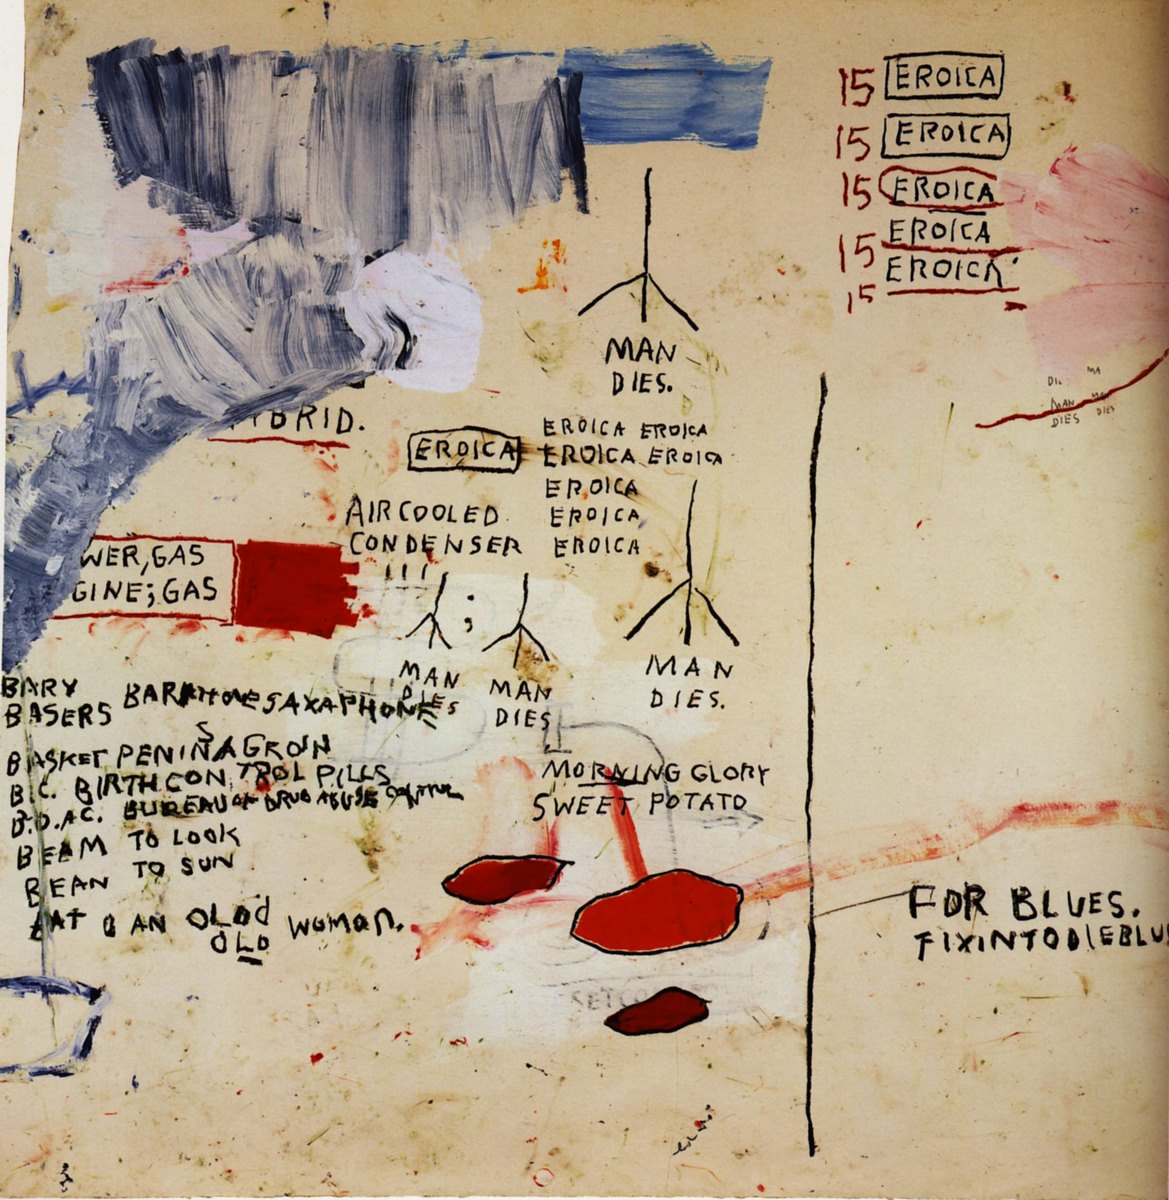 15 EROICA
15 EROICA
15 EROICA
15 EROICA
15 EROICA
MAN
DIES.
MA
MAN
DIES
DIES
BRID.
EROICA
EROICA EROICA
EROICA EROICA
EROICA
EROICA
EROICA
AIRCOOLED
CONDENSER
WER, GAS
GINE; GAS
;
MAN
DIES
MAN
DIES
MAN
DIES.
BARY
BASERS BARITONE SAXAPHONE
S
BASKET PENINA GROIN
B.C. BIRTH CONTROL PILLS
B.D.AC. BUREAU OF DRUG ABUSE CONTROL
BEAM TO LOOK
BEAN TO SUN
EAT O AN OLDd WOMAN.
OLD
MORNING GLORY
SWEET POTATO
FOR BLUES.
FIXINTODIEBLU